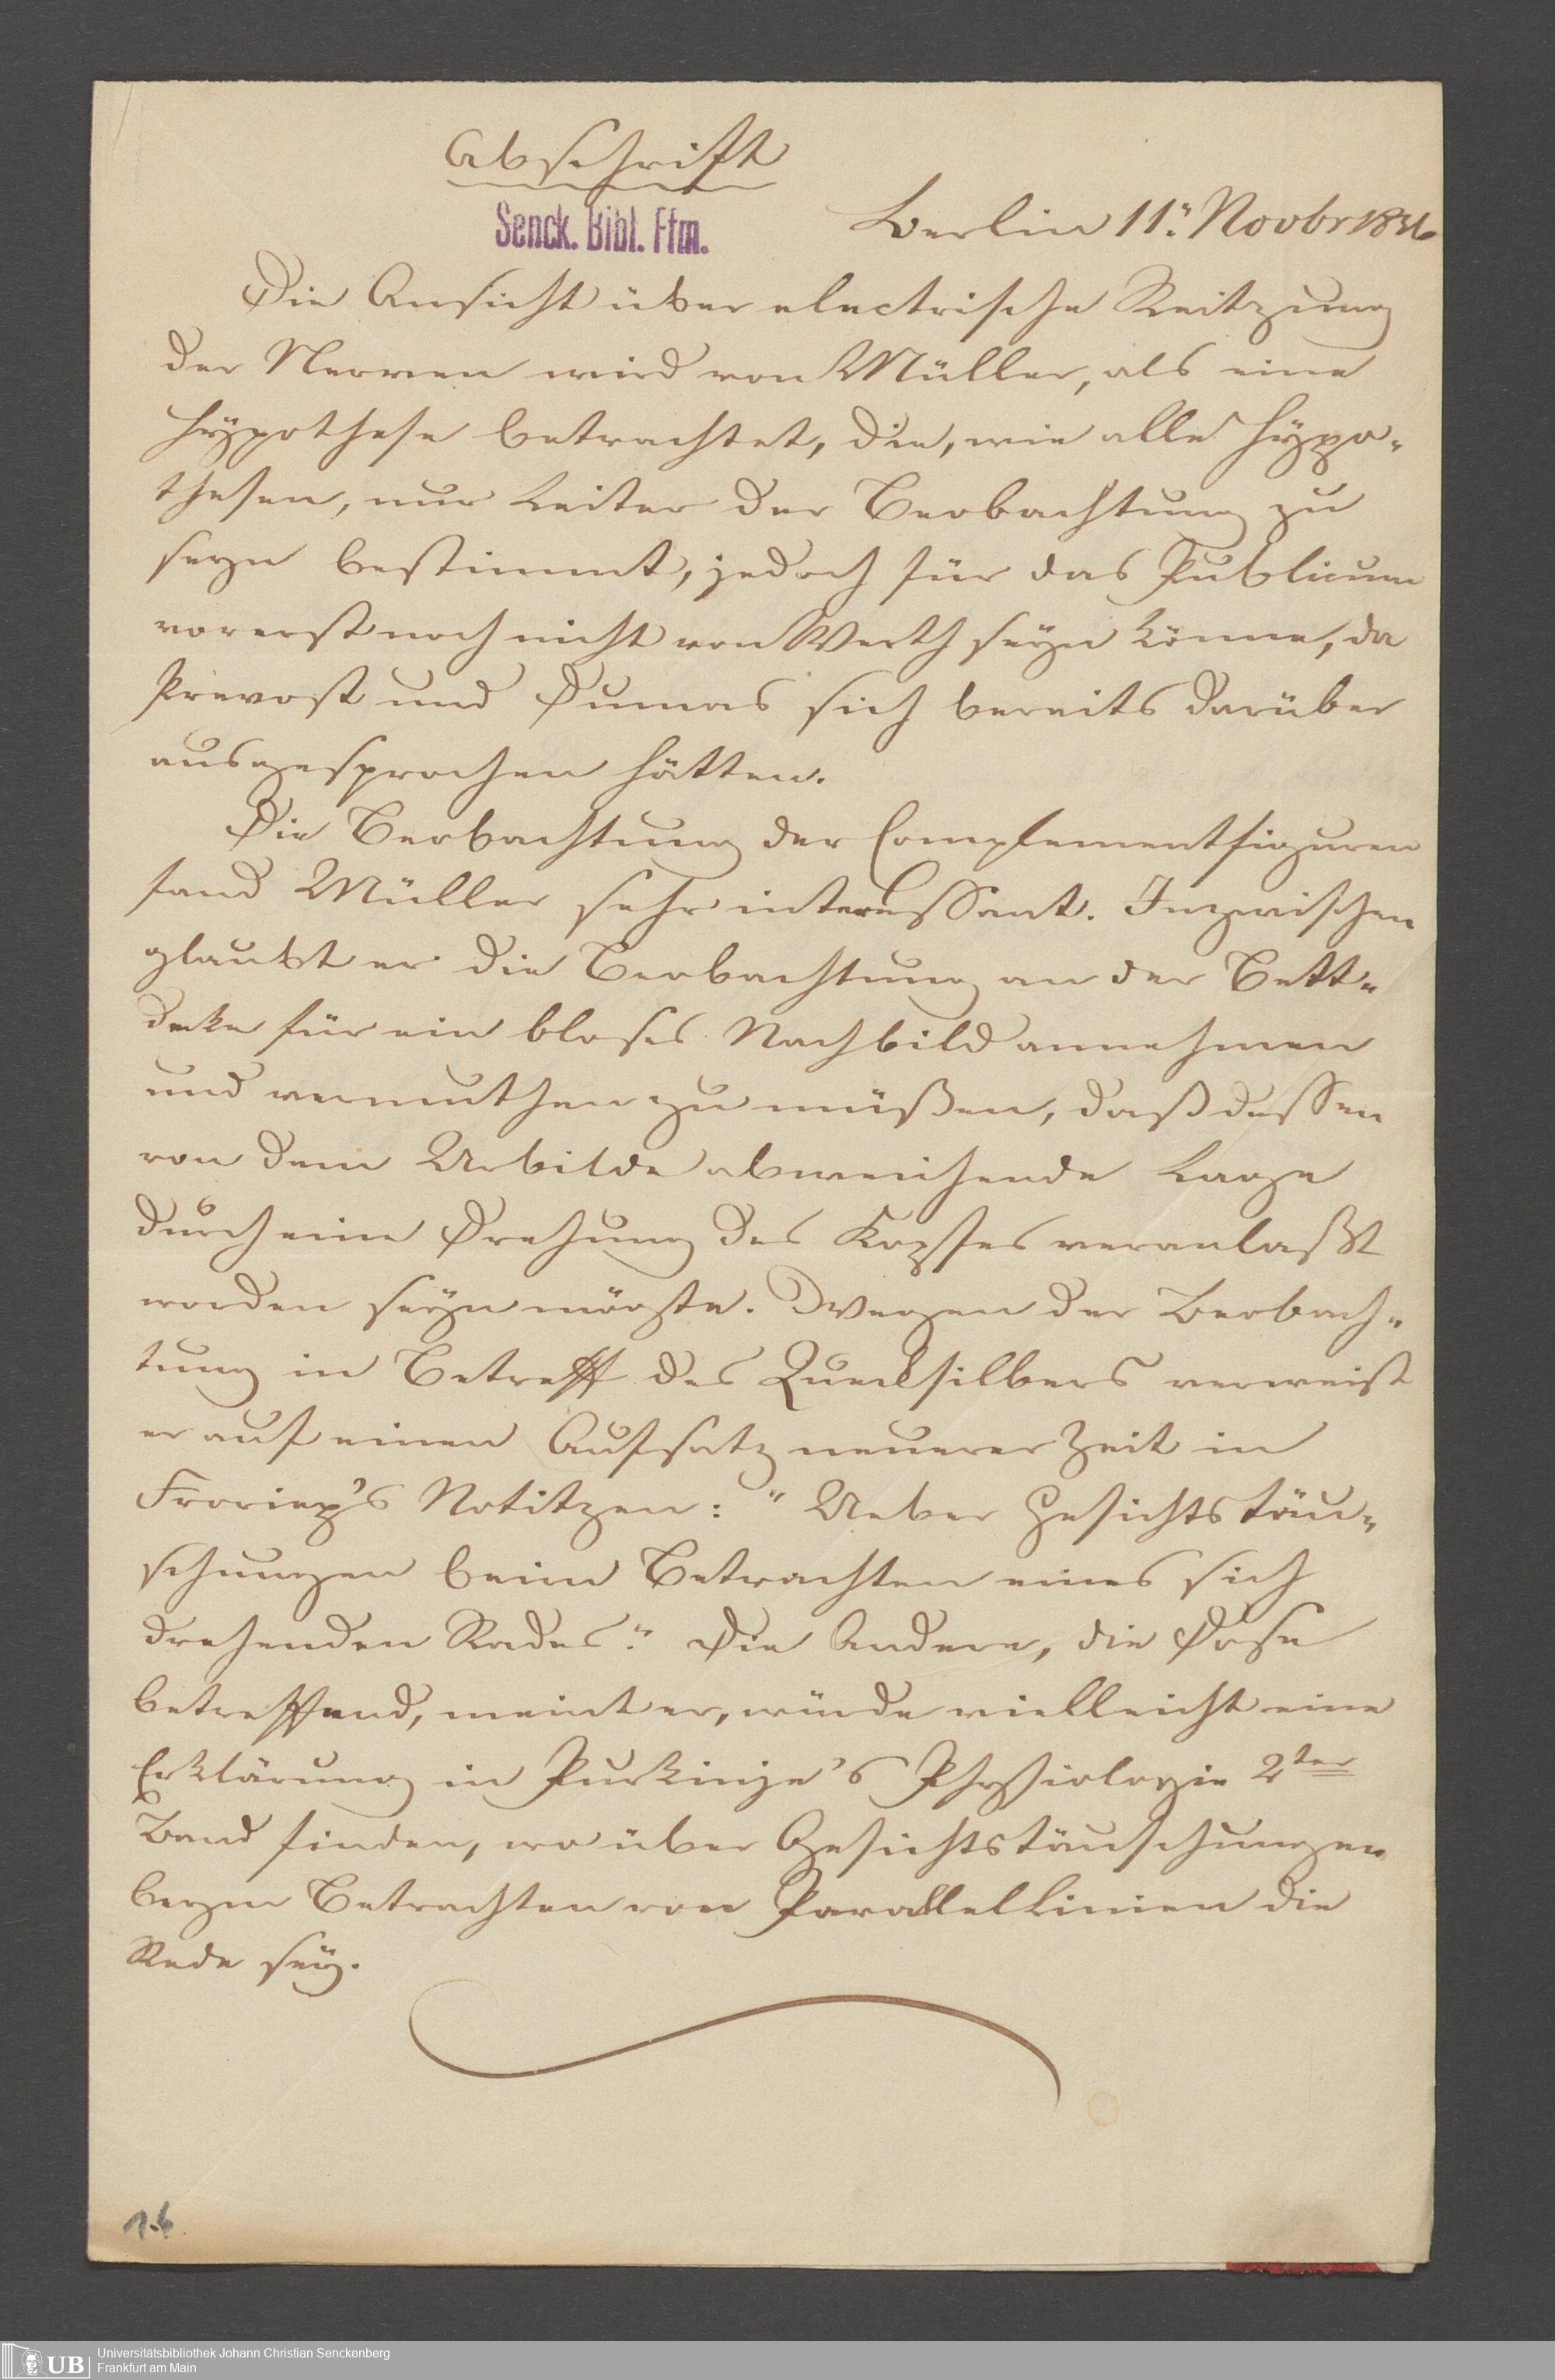 Abschrift
Senck. Bibl. Ffm.
Berlin 11. Novbr 1836
Die Ansicht über electrische Reitzung
der Nerven wird von Müller, als eine
Hypothese betrachtet, die, wie alle Hypo-
thesen, nur Leiter der Beobachtung zu
seyn bestimmt, jedoch für das Publicum
vorerst noch nicht von Werth seyn könne, da
Prevost und Dumas sich bereits darüber
ausgesprochen hätten.
Die Beobachtung der Complementfiguren
fand Müller sehr interessant. Inzwischen
glaubt er die Beobachtung an der Bett-
decke für ein bloses Nachbild annehmen
und vermuthen zu müßen, daß dessen
von dem Urbilde abweichende Lage
durch eine Drehung des Kopfes veranlaßt
worden seyn mögte. Wegen der Beobach-
tung in Betreff des Quecksilbers verweist
er auf einen Aufsatz neuerer Zeit in
Froriep's Notitzen: "Ueber Gesichtstäu-
schungen beim Betrachten eines sich
drehenden Rades." Die Andere, die Dose
betreffend, meint er, würde vielleicht eine
Erklärung in Purkinje's Physiologie 2ter
Band finden, wo über Gesichtstäuschungen
beym Betrachten von Parallellinien die
Rede sey.
1.6
UB Universitätsbibliothek Johann Christian Senckenberg
Frankfurt am Main